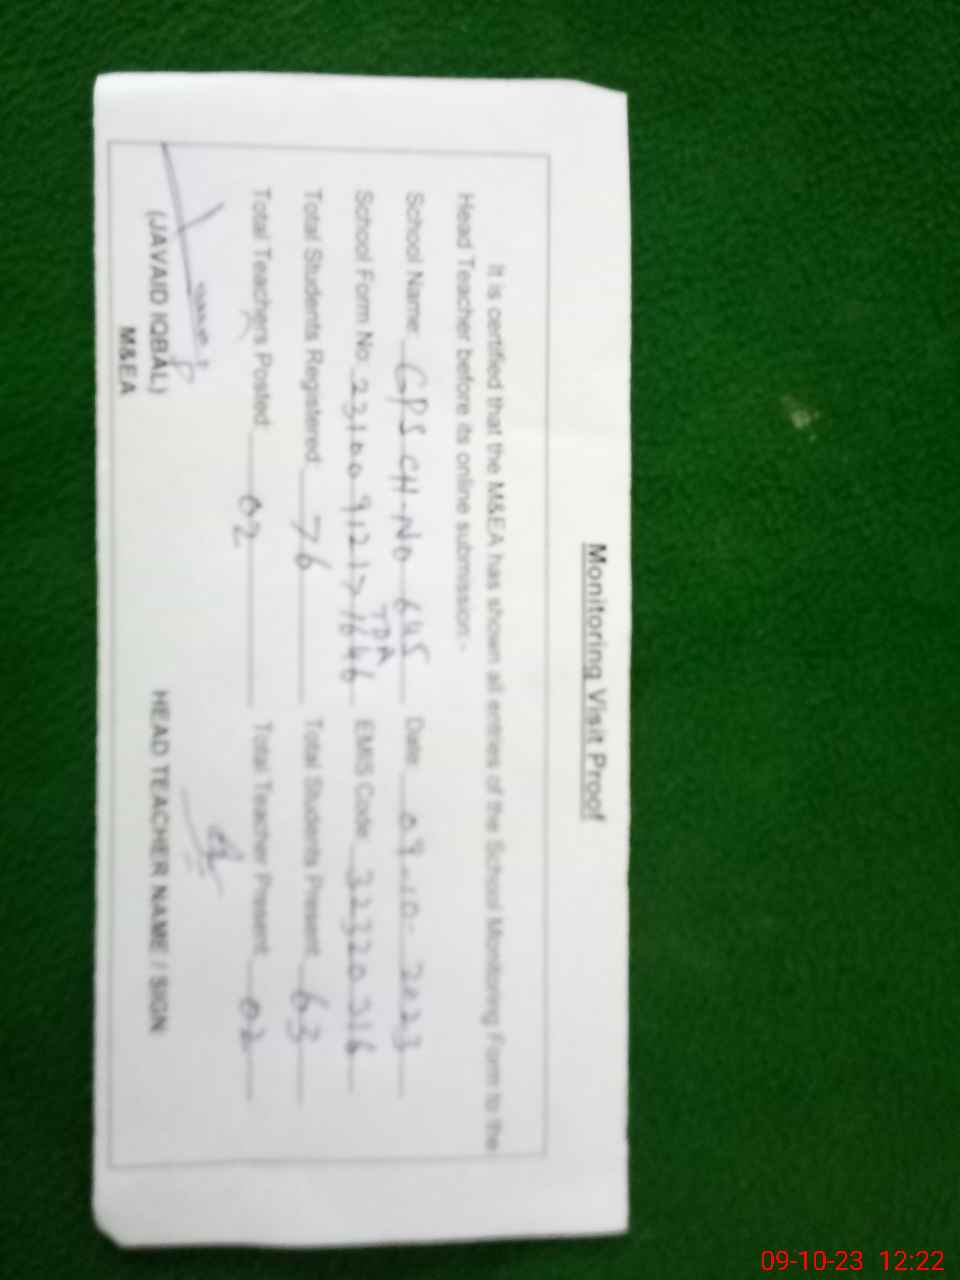 Monitoring Visit Proof
It is certified that the M&EA has shown all entries of the School Monitoring Form to the
Head Teacher before its online submission:-
School Name: GPS CH-No 645 TDA Date: 09-10-2023
School Form No 23100912171646 EMIS Code: 32320316
Total Students Registered: 76 Total Students Present 63
Total Teachers Posted: 02 Total Teacher Present: 02
(JAVAID IQBAL) HEAD TEACHER NAME / SIGN
M&EA
09-10-23 12:22